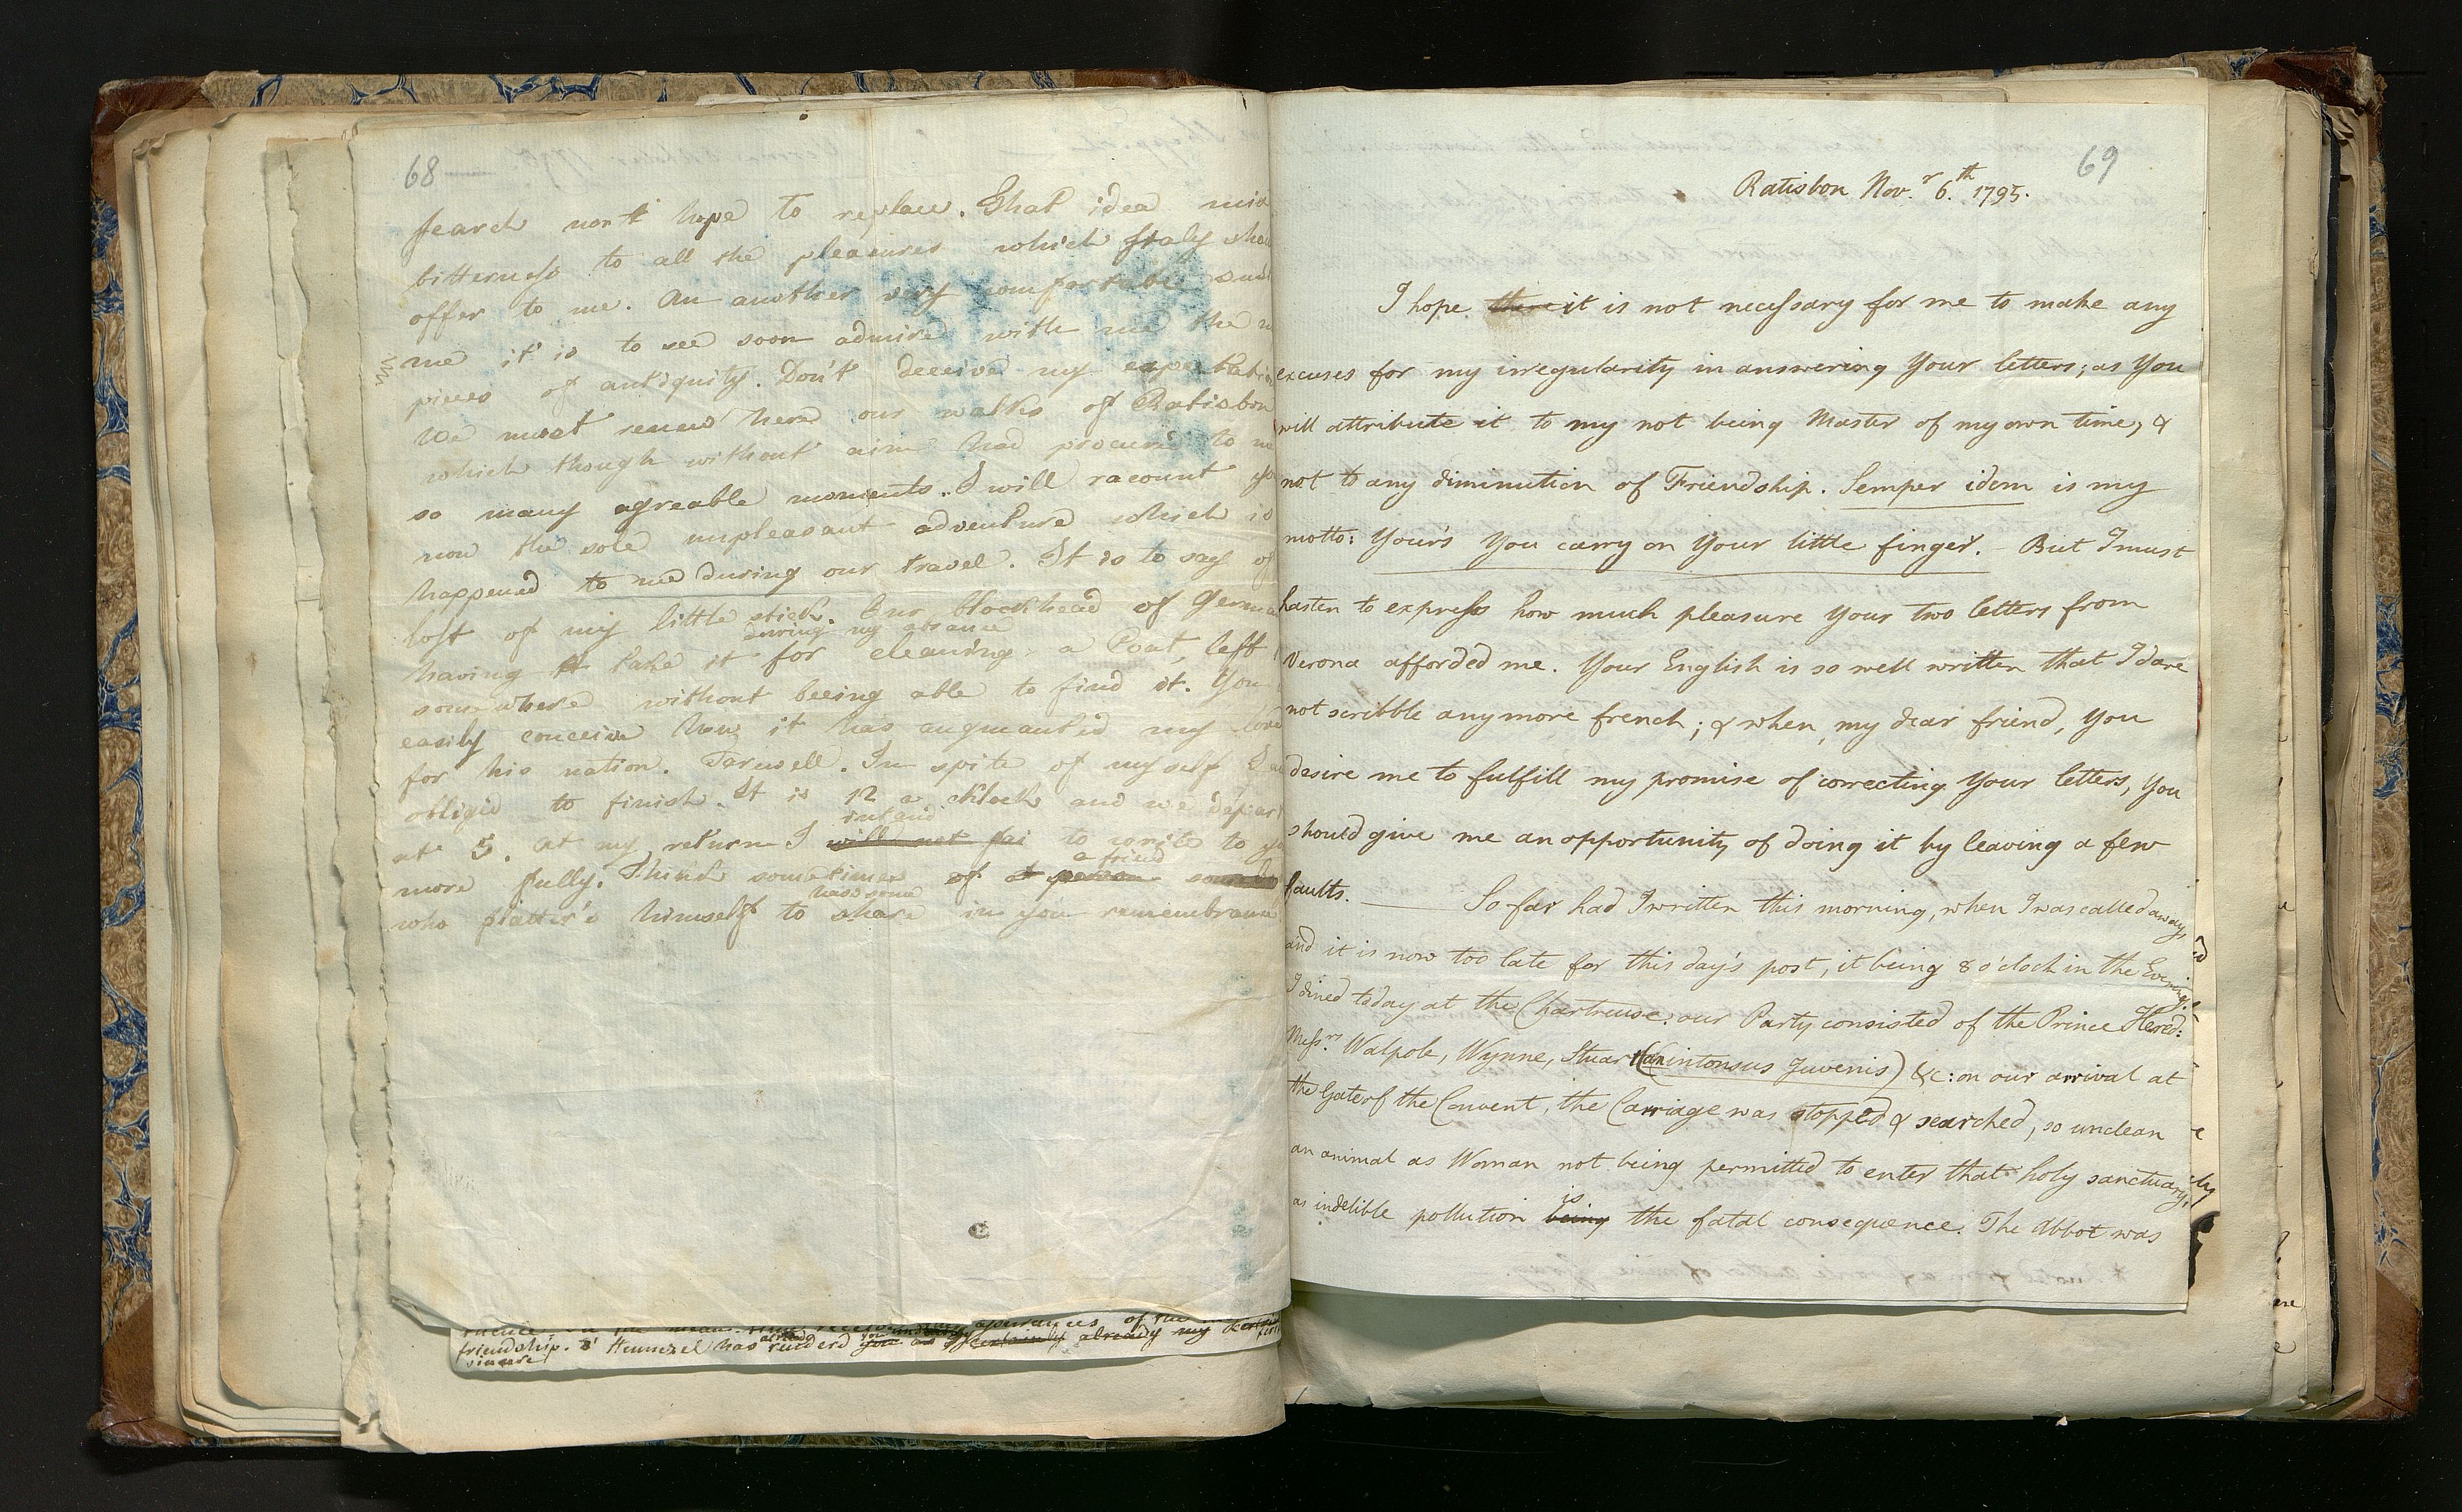 68
search nor't hope to replace. That idea mix
bitterness to all the pleasures which Italy shou
offer to me. An another very comfortable
me it is to see soon admire with me the
pieces of antiquity. Don't deceive my expectation
We must renew here our walks of Ratisbon
which though without aim had procured to me
so many agreable moments. I will racount you
now the sole unpleasant adventure which is
happened to me during our travel. It is to say of
lost of my little stick. Our blockhead of German
during my absence
having take it for cleaning a Coat, left
somewhere without beeing able to find it. You
easily conceive how it has augmanted my love
for his nation. Farewell. In spite of myself I am
obliged to finish. It is 12 a clock and we depart
intend
at 5. at my return I will not fai to write to you
a friend
more fully. Think sometimes of a person some
have some
who flatter's himself to share in you remembrance
friendship. Hennezel has already renderd you an already my
sincere
69
Ratisbon Nov.r 6.th 1795.
I hope there it is not necessary for me to make any
excuses for my irregularity in answering Your letters; as You
will attribute it to my not being Master of my own time, &
not to any diminution of Friendship. Semper idem is my
motto: Your's You carry on Your little finger. – But I must
hasten to express how much pleasure Your two letters from
Verona afforded me. Your English is so well written that I dare
not scribble any more french; & when, my dear friend, You
desire me to fulfill my promise of correcting Your letters, You
should give me an opportunity of doing it by leaving a few
faults. —— So far had I written this morning, when I was called away,
and it is now too late for this day's post, it being 8 o'clock in the Evening.
I dined today at the Chartreuse: our Party consisted of the Prince Hered:
Mess.rs Walpole, Wynne, Stuart (intonsus Juvenis) &c: on our arrival at
the Gate of the Convent, the Carriage was stopped & searched, so unclean
an animal as Woman not being permitted to enter that holy sanctuary,
is
as indelible pollution being the fatal consequence. The Abbot was